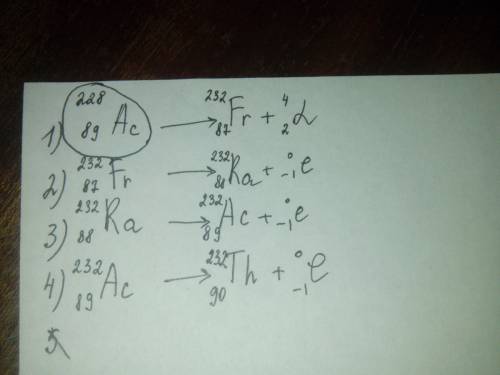 1) ²²⁸₈₉Ac → ²³²₈₇Fr + ⁴₂α
2) ²³²₈₇Fr → ²³²₈₈Ra + ⁰₋₁e
3) ²³²₈₈Ra → ²³²₈₉Ac + ⁰₋₁e
4) ²³²₈₉Ac → ²³²₉₀Th + ⁰₋₁e